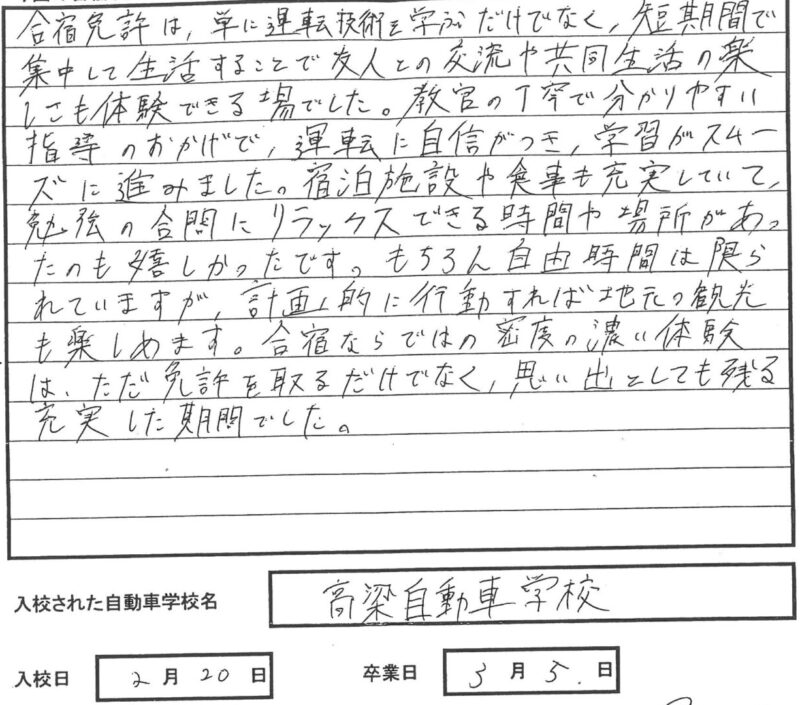 合宿免許は、単に運転技術を学ぶだけでなく、短期間で
集中して生活することで友人との交流や共同生活の楽
しさも体験できる場でした。教官の丁寧で分かりやすい
指導のおかげで、運転に自信がつき、学習がスムー
ズに進みました。宿泊施設や食事も充実していて、
勉強の合間にリラックスできる時間や場所があっ
たのも嬉しかったです。もちろん自由時間は限ら
れていますが、計画的に行動すれば地元の観光
も楽しめます。合宿ならではの密度の濃い体験
は、ただ免許を取るだけでなく、思い出としても残る
充実した期間でした。
入校された自動車学校名 高梁自動車学校
入校日 2月20日 卒業日 3月5.日